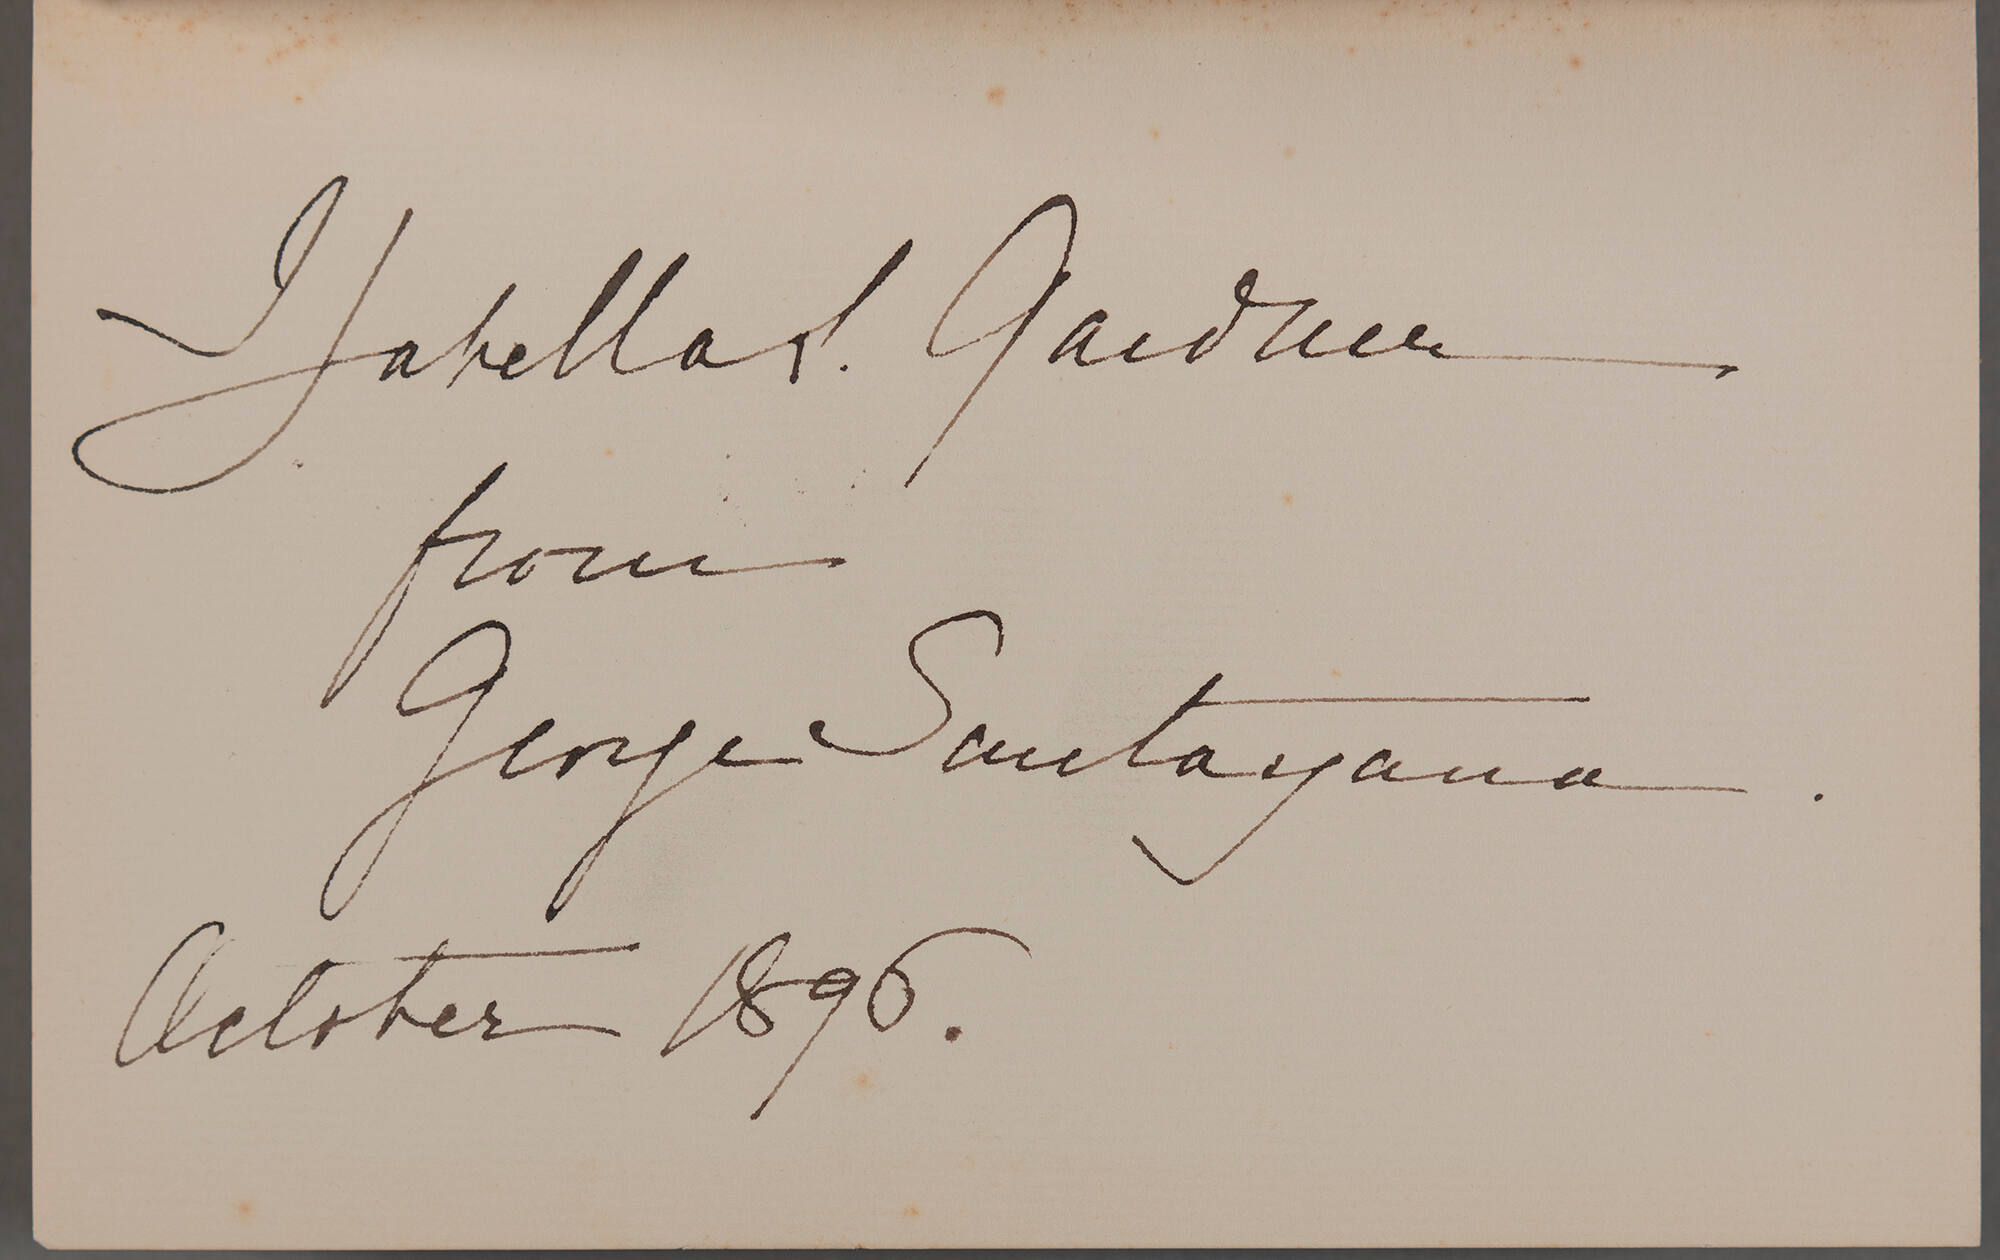 Isabella S. Gardner
from
George Santayana.
October 1896.